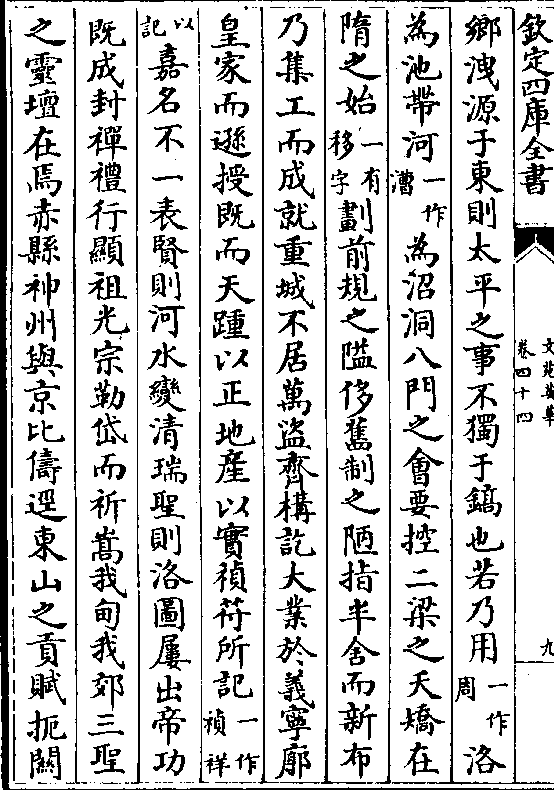 欽定四庫全書
文苑英華
卷四十四
九
鄉洩源于東則太平之事不獨于鎬也若乃用一作周洛
為池帶河一作漕為沼洞八門之會要控二梁之天矯在
隋之始一有移字劃前規之隘侈舊制之陋指半舍而新布
乃集工而成就重城不居萬盜齊構訖大業於義寧廓
皇家而遜授既而天踵以正地產以實禎符所記一作禎祥
以記嘉名不一表賢則河水變清瑞聖則洛圖屢出帝功
既成封禪禮行顯祖光宗勒岱而祈嵩我甸我郊三聖
之靈壇在焉赤縣神州與京比儔逕東山之貢賦扼關